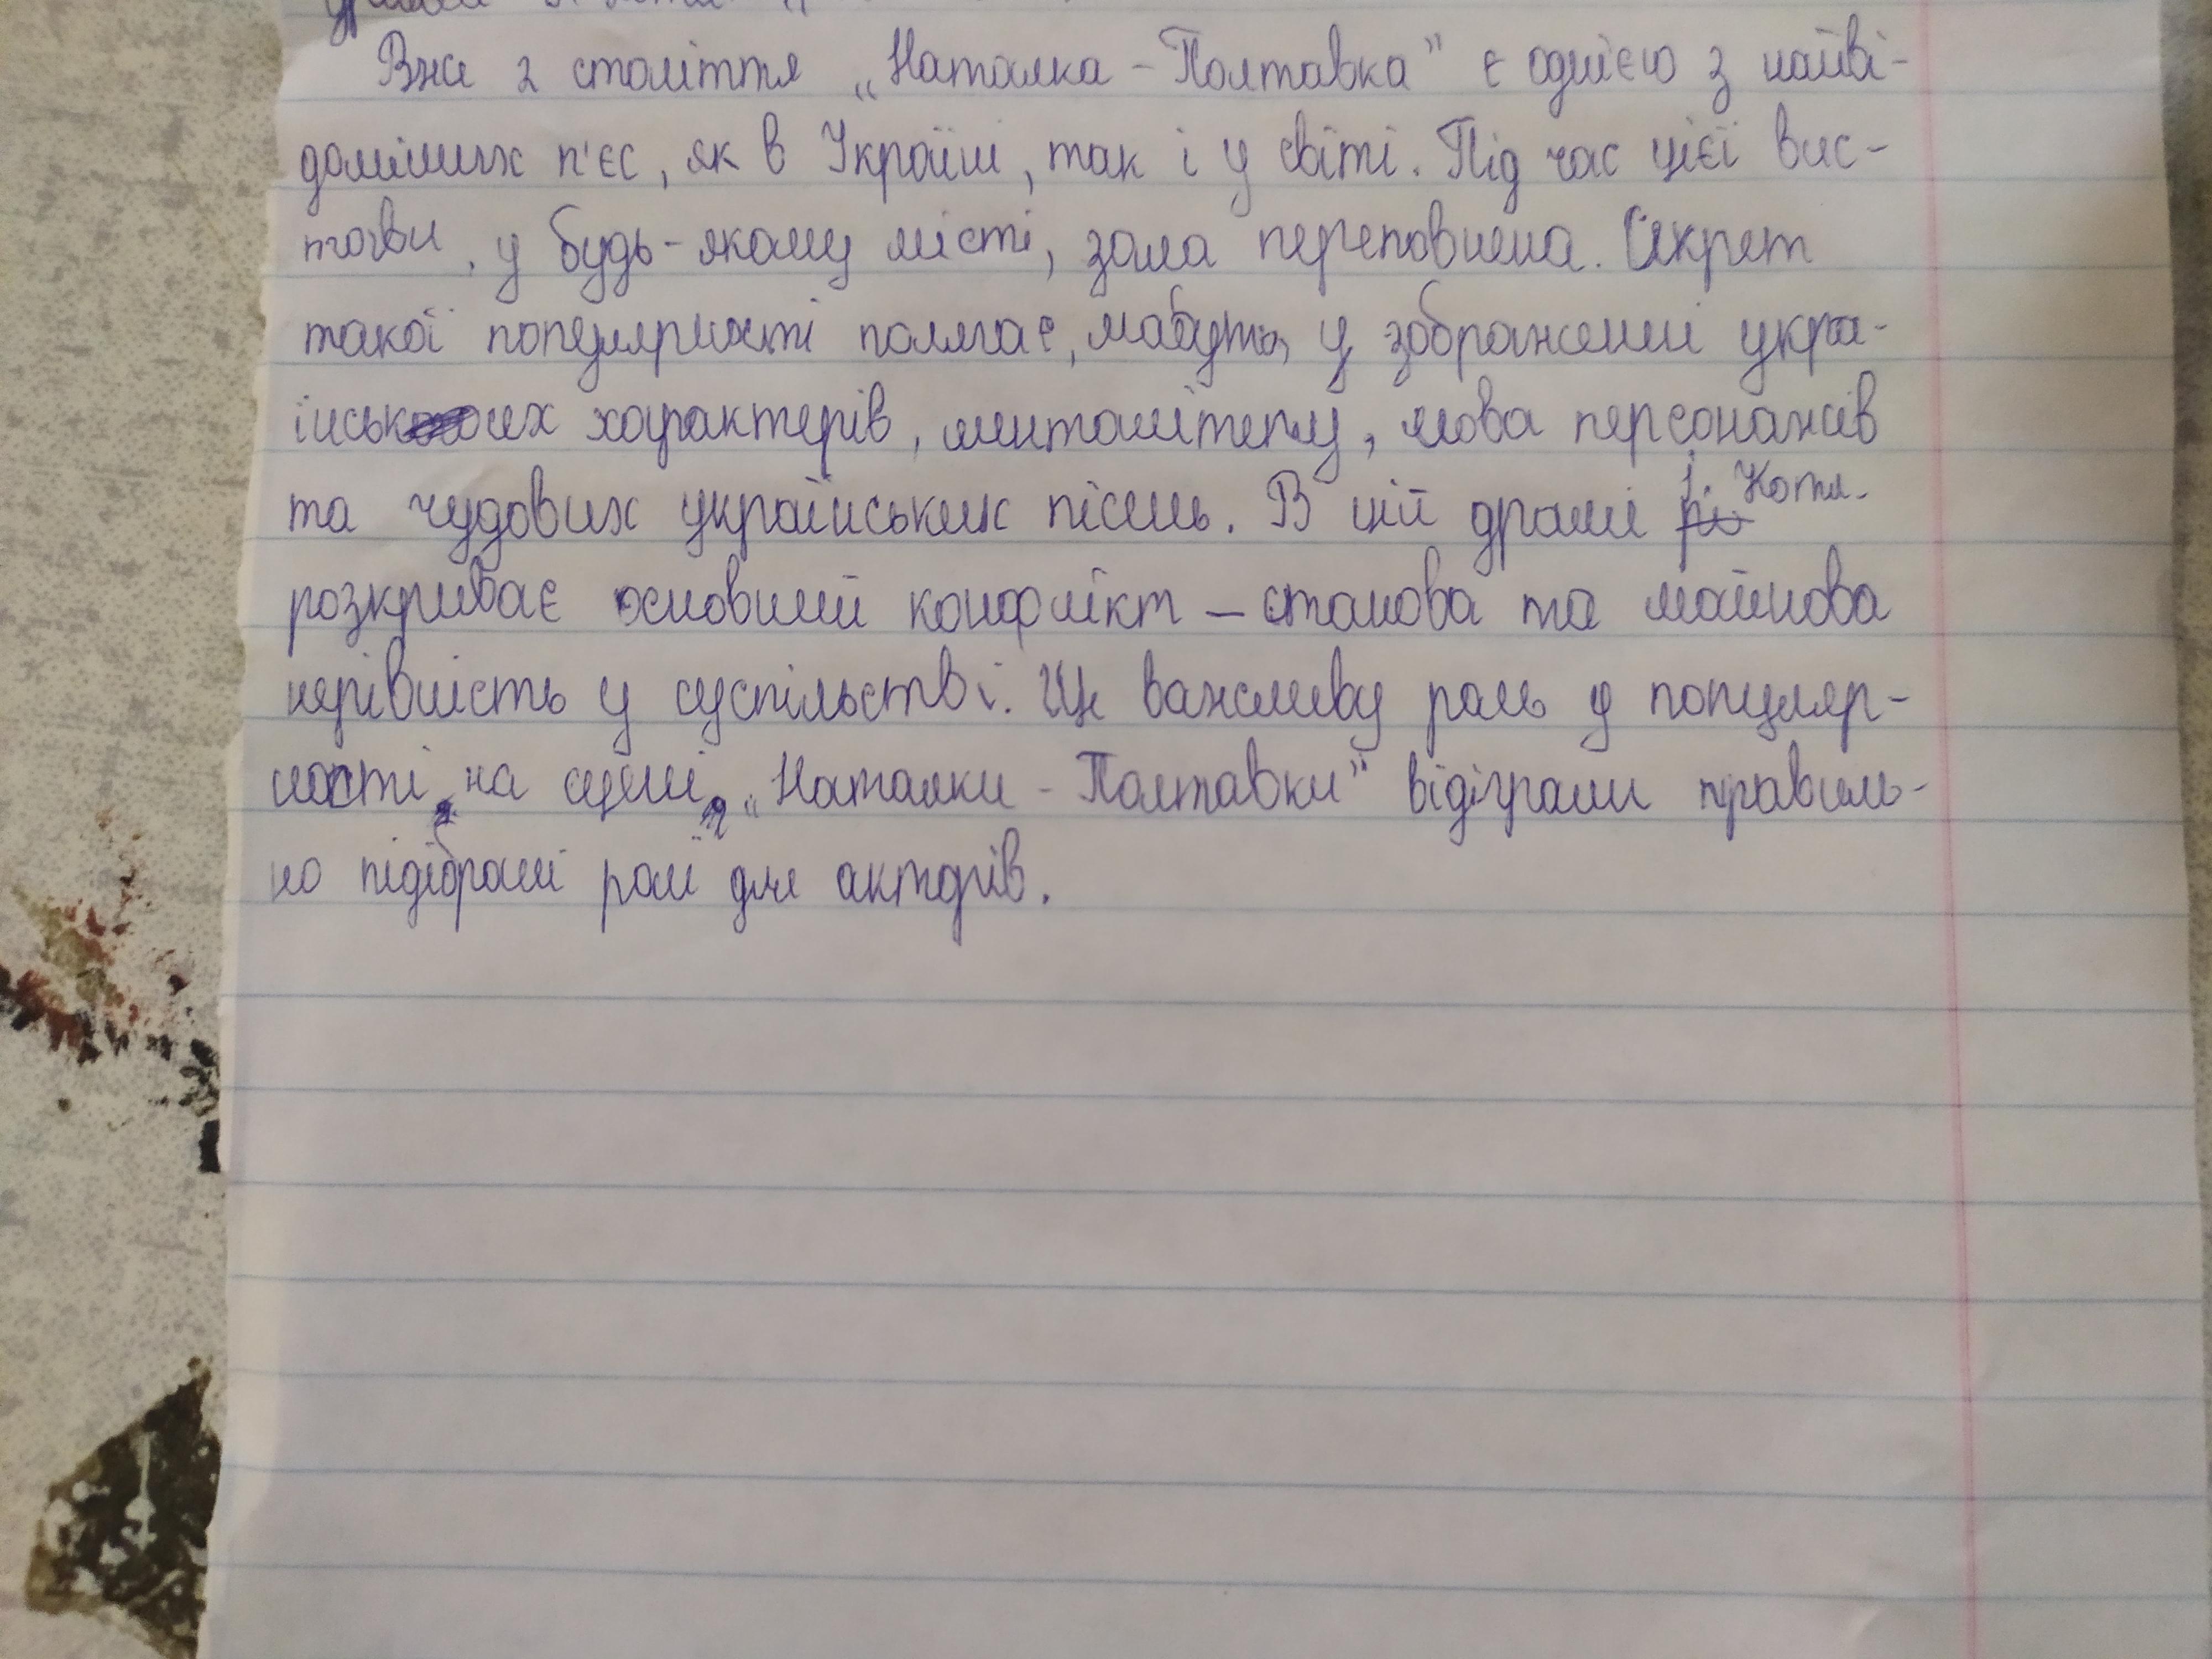 Вже 2 століття „Наталка - Полтавка" є однією з найві-
доміших п'єс, як в Україні, так і у світі. Під час цієї вис-
тави, у будь-якому місті, зала переповнена. Секрет
такої популярності полягає, мабуть, у зображенні укра-
їнських характерів, менталітету, мова персонажів
та чудових українських пісень. В цій драмі І. Котл.
розкриває основний конфлікт – станова та майнова
нерівність у суспільстві. Ще важливу роль у популяр-
ності на сцені „Наталки - Полтавки" відіграли правиль-
но підібрані ролі для акторів.